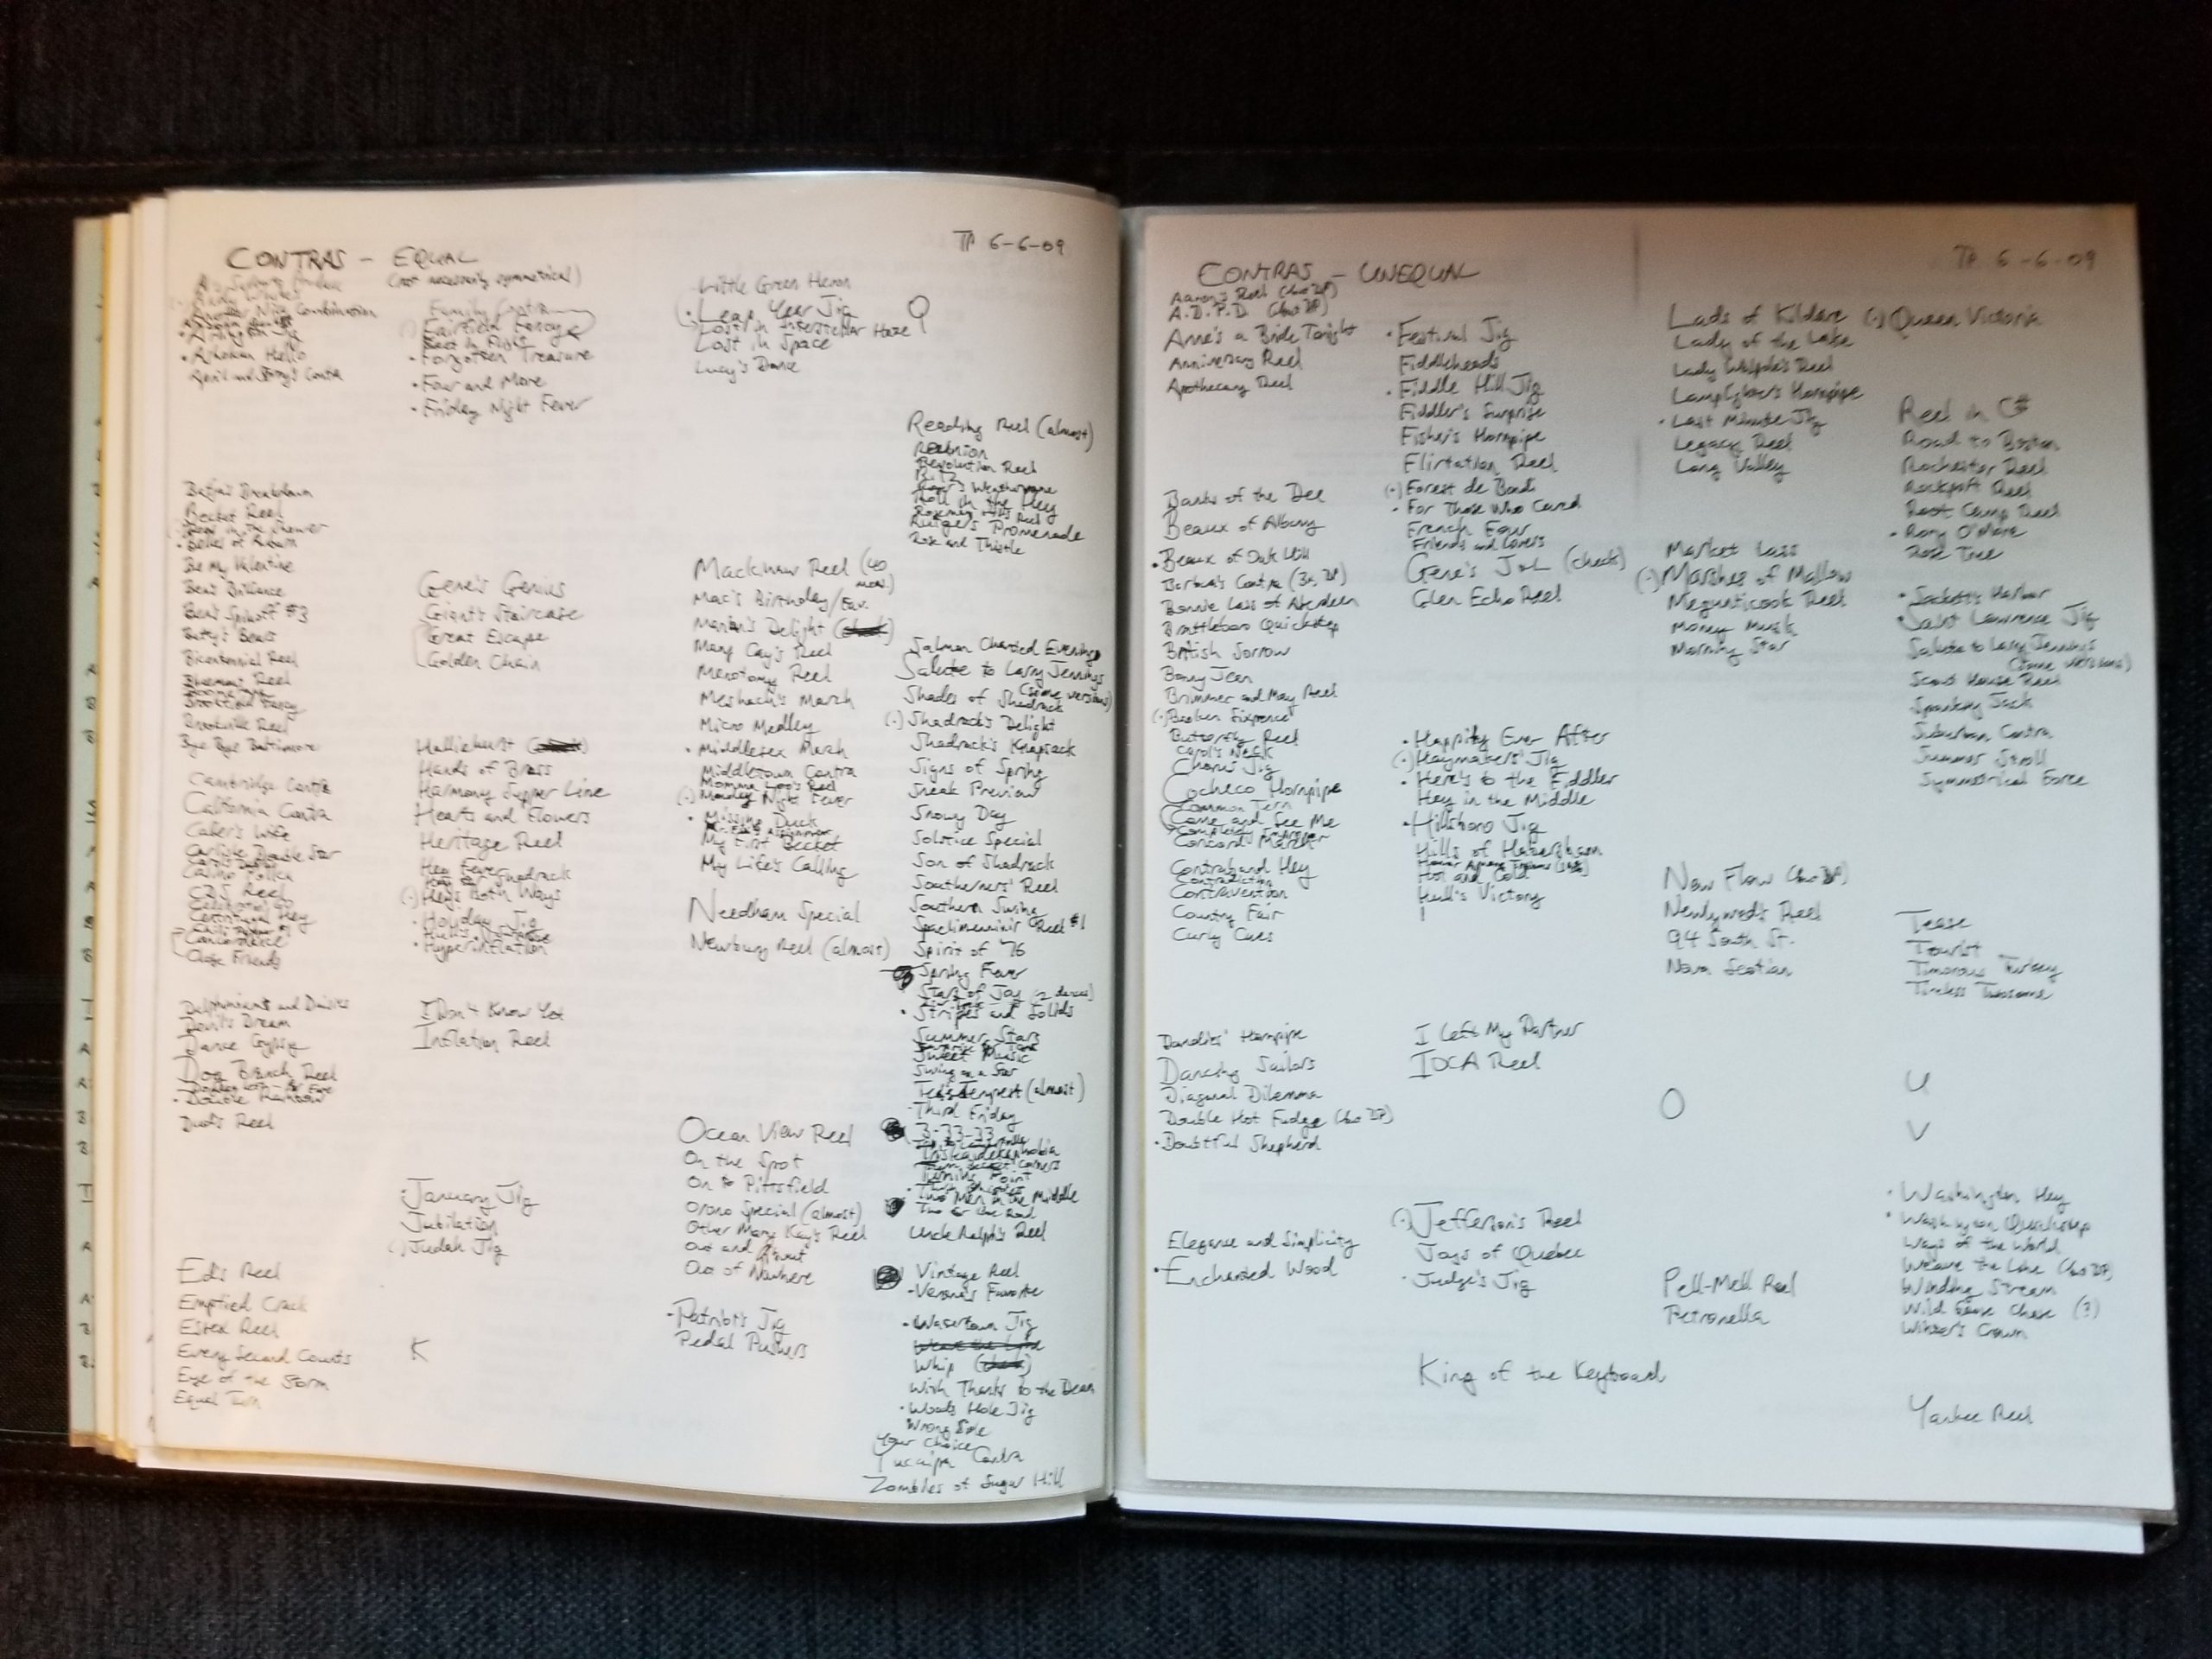 CONTRAS - EQUAL
(not necessarily symmetrical)
TP 6-6-09
Another Nice Combination
• Arlington Jig
• Ashokan Hello
April and Contra
Breakdown
Becket Reel
in the Shower
• Belles of Auburn
Be My Valentine
Ben's Brilliance
Ben's Spinoff #3
Betty's Beaus
Bicentennial Reel
Reel
Brookline Fancy
Brookville Reel
Bye Bye Baltimore
Cambridge Contra
California Contra
Caller's Wife
Carlisle Double Star
CDS Reel
Centrifugal Hey
Concordance
Close Friends
Delphiniums and Daisies
Devil's Dream
Dance Gypsy
Dog Branch Reel
• Double Rainbow
Dud's Reel
Ed's Reel
Emptied Crack
Essex Reel
Every Second Counts
Eye of the Storm
Equal Turn
Family Contra
Fairfield Fancy
• Forgotten Treasure
• Four and More
• Friday Night Fever
Gene's Genius
Giant's Staircase
Great Escape
Golden Chain
Halliehurst
Hands of Brass
Harmony Supper Line
Hearts and Flowers
Heritage Reel
Hey Fever
(•) Heys Both Ways
• Holiday Jig
• Hyperinflation
I Don't Know Yet
Inflation Reel
• January Jig
Jubilation
Judah Jig
K
Little Green Heron
Leap Year Jig
Lost in Interstellar Haze
Lost in Space
Lucy's Dance
Mackinaw Reel (40
meas.)
Mac's Birthday/Fav.
Marian's Delight
Mary Cay's Reel
Menotomy Reel
Meshach's March
Micro Medley
• Middlesex March
Middletown Contra
Momma Loo's Reel
(•) Monday Night Fever
• Missing Duck
My First Becket
My Life's Calling
Needham Special
Newbury Reel (almost)
Ocean View Reel
On the Spot
On to Pittsfield
Orono Special (almost)
Other Mary Kay's Reel
Out and About
Out of Nowhere
• Patriots Jig
Pedal Pushers
Q
Reading Reel (almost)
Reunion
Revolution Reel
Weathervane
Roll in the Hey
Rutgers Promenade
Rose and Thistle
Salmon Chanted Evening
Salute to Larry Jennings
(some versions)
Shades of Shadrack
(•) Shadrack's Delight
Shadrack's Knapsack
Signs of Spring
Sneak Preview
Snowy Day
Solstice Special
Son of Shadrack
Southerners' Reel
Southern Swing
Reel #1
Spirit of '76
Spring Fever
Stars of Joy (2 dances)
• Stripes and Solids
Summer Stars
Sweet Music
Swing on a Star
Ted's Tempest (almost)
Third Friday
3-33-33
Triskaidekaphobia
Turning Point
Two Men in the Middle
Two for the Road
Uncle Ralph's Reel
Vintage Reel
• Verona's Favorite
• Watertown Jig
Whip
With Thanks to the Dean
• Woods Hole Jig
Your Choice
Yucaipa Contra
Zombies of Sugar Hill
CONTRAS - UNEQUAL
TP 6-6-09
Aaron's Reel
A.D.P.D.
Anne's a Bride Tonight
Anniversary Reel
Apothecary Reel
Banks of the Dee
Beaux of Albany
• Beaux of Oak Hill
Barbara's Contra
Bonnie Lass of Aberdeen
Brattleboro Quickstep
British Sorrow
Bonny Jean
Brimmer and May Reel
(•) Broken Sixpence
Butterfly Reel
Chorus Jig
Cocheco Hornpipe
Common Tern
Come and See Me
Contraband Hey
Contradiction
Contravention
Country Fair
Curly Cues
Dandies' Hornpipe
Dancing Sailors
Diagonal Dilemma
Double Hot Fudge
• Doubtful Shepherd
Elegance and Simplicity
• Enchanted Wood
• Festival Jig
Fiddleheads
• Fiddle Hill Jig
Fiddler's Surprise
Fisher's Hornpipe
Flirtation Reel
(•) Forest de Bondi
• For Those Who Cared
French Four
Friends and Lovers
Gene's J&L (check)
Glen Echo Reel
• Happily Ever After
(•) Haymakers' Jig
• Here's to the Fiddler
Hey in the Middle
• Hillsboro Jig
Hills of Habersham
Hot and Cold
Hull's Victory
I Left My Partner
IOCA Reel
(•) Jefferson's Reel
Joys of Quebec
• Judge's Jig
King of the Keyboard
Lads of Kildare
Lady of the Lake
Lady Walpole's Reel
Lamplighter's Hornpipe
• Last Minute Jig
Legacy Reel
Long Valley
Market Lass
(•) Marshes of Mallow
Megunticook Reel
Money Musk
Morning Star
New Flow
Newlywed's Reel
94 South St.
Nova Scotian
O
Pell-Mell Reel
Petronella
(•) Queen Victoria
Reel in C#
Road to Boston
Rochester Reel
Rockport Reel
Root Camp Reel
• Rory O'More
Rose Tree
• Sackett's Harbor
• Saint Lawrence Jig
Salute to Larry Jennings
(some versions)
Scout House Reel
Spanking Jack
Suburban Contra
Summer Stroll
Symmetrical Force
Tease
Tourist
Timorous Turkey
Timeless Twosome
U
V
• Washington Hey
• Washington Quickstep
Ways of the World
Weave the Line
Winding Stream
Wild Goose Chase (?)
Winter's Crown
Yankee Reel